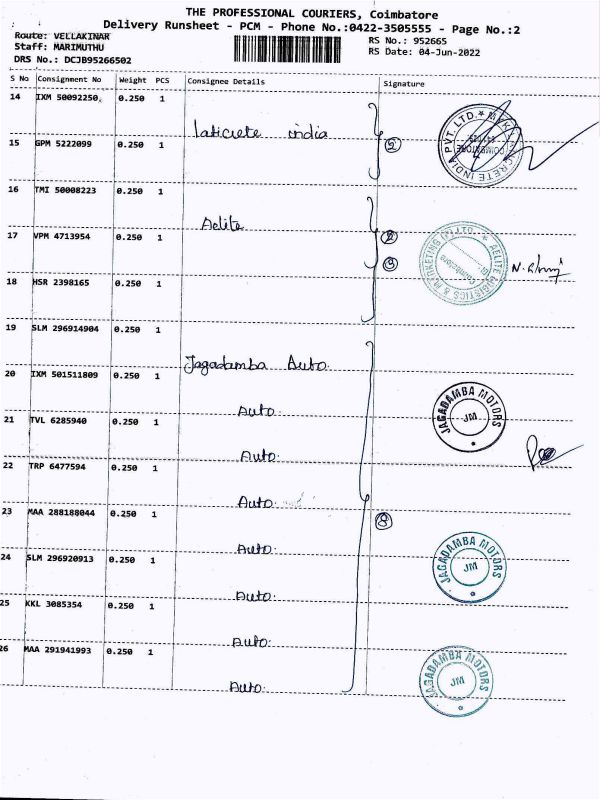 THE PROFESSIONAL COURIERS, Coimbatore
Delivery Runsheet - PCM - Phone No.:0422-3505555 - Page No.:2
Route: VELLAKINAR
RS No.: 952665
Staff: MARIMUTHU
RS Date: 04-Jun-2022
DRS No.: DCJB95266502
S No Consignment No Weight PCS Consignee Details Signature
14 IXM 50092250 0.250 1
laticrete india
15 GPM 5222099 0.250 1
5
16 TMI 50008223 0.250 1
Aelite
17 VPM 4713954 0.250 1
18 HSR 2398165 0.250 1
19 SLM 296914904 0.250 1
Jagadamba Auto.
20 IXM 501511809 0.250 1
Auto.
JAGADAMBA MOTORS
JM
21 TVL 6285940 0.250 1
Auto.
22 TRP 6477594 0.250 1
Auto.
23 MAA 288188044 0.250 1
8
Auto.
JAGADAMBA MOTORS
JM
24 SLM 296920913 0.250 1
Auto.
25 KKL 3085354 0.250 1
Auto.
26 MAA 291941993 0.250 1
Auto.
JAGADAMBA MOTORS
JM